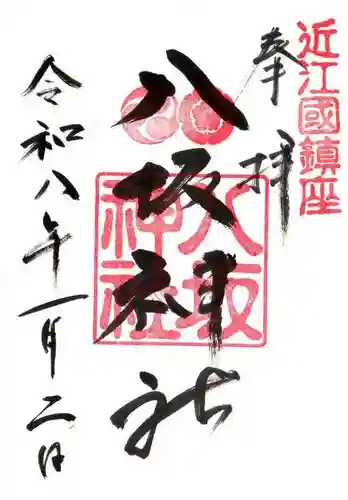 近江國鎮座
奉拝
八坂神社
八坂
神社
令和八年一月二日